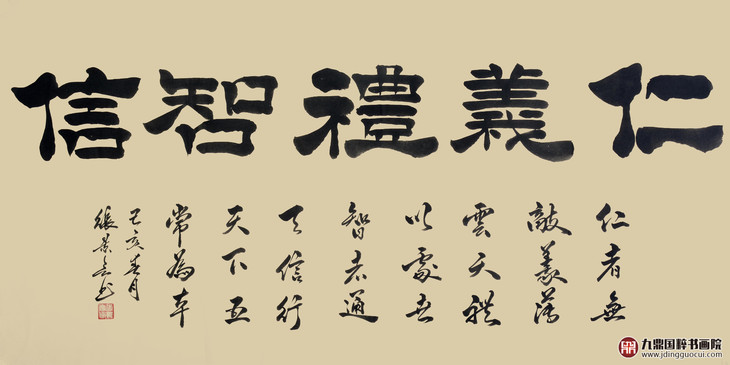 仁義禮智信
仁者無
敵義薄
雲天礼
以處世
智者通
天信行
天下五
常為本
己亥春月
張景書
九鼎国粹书画院
www.jdingguocui.com